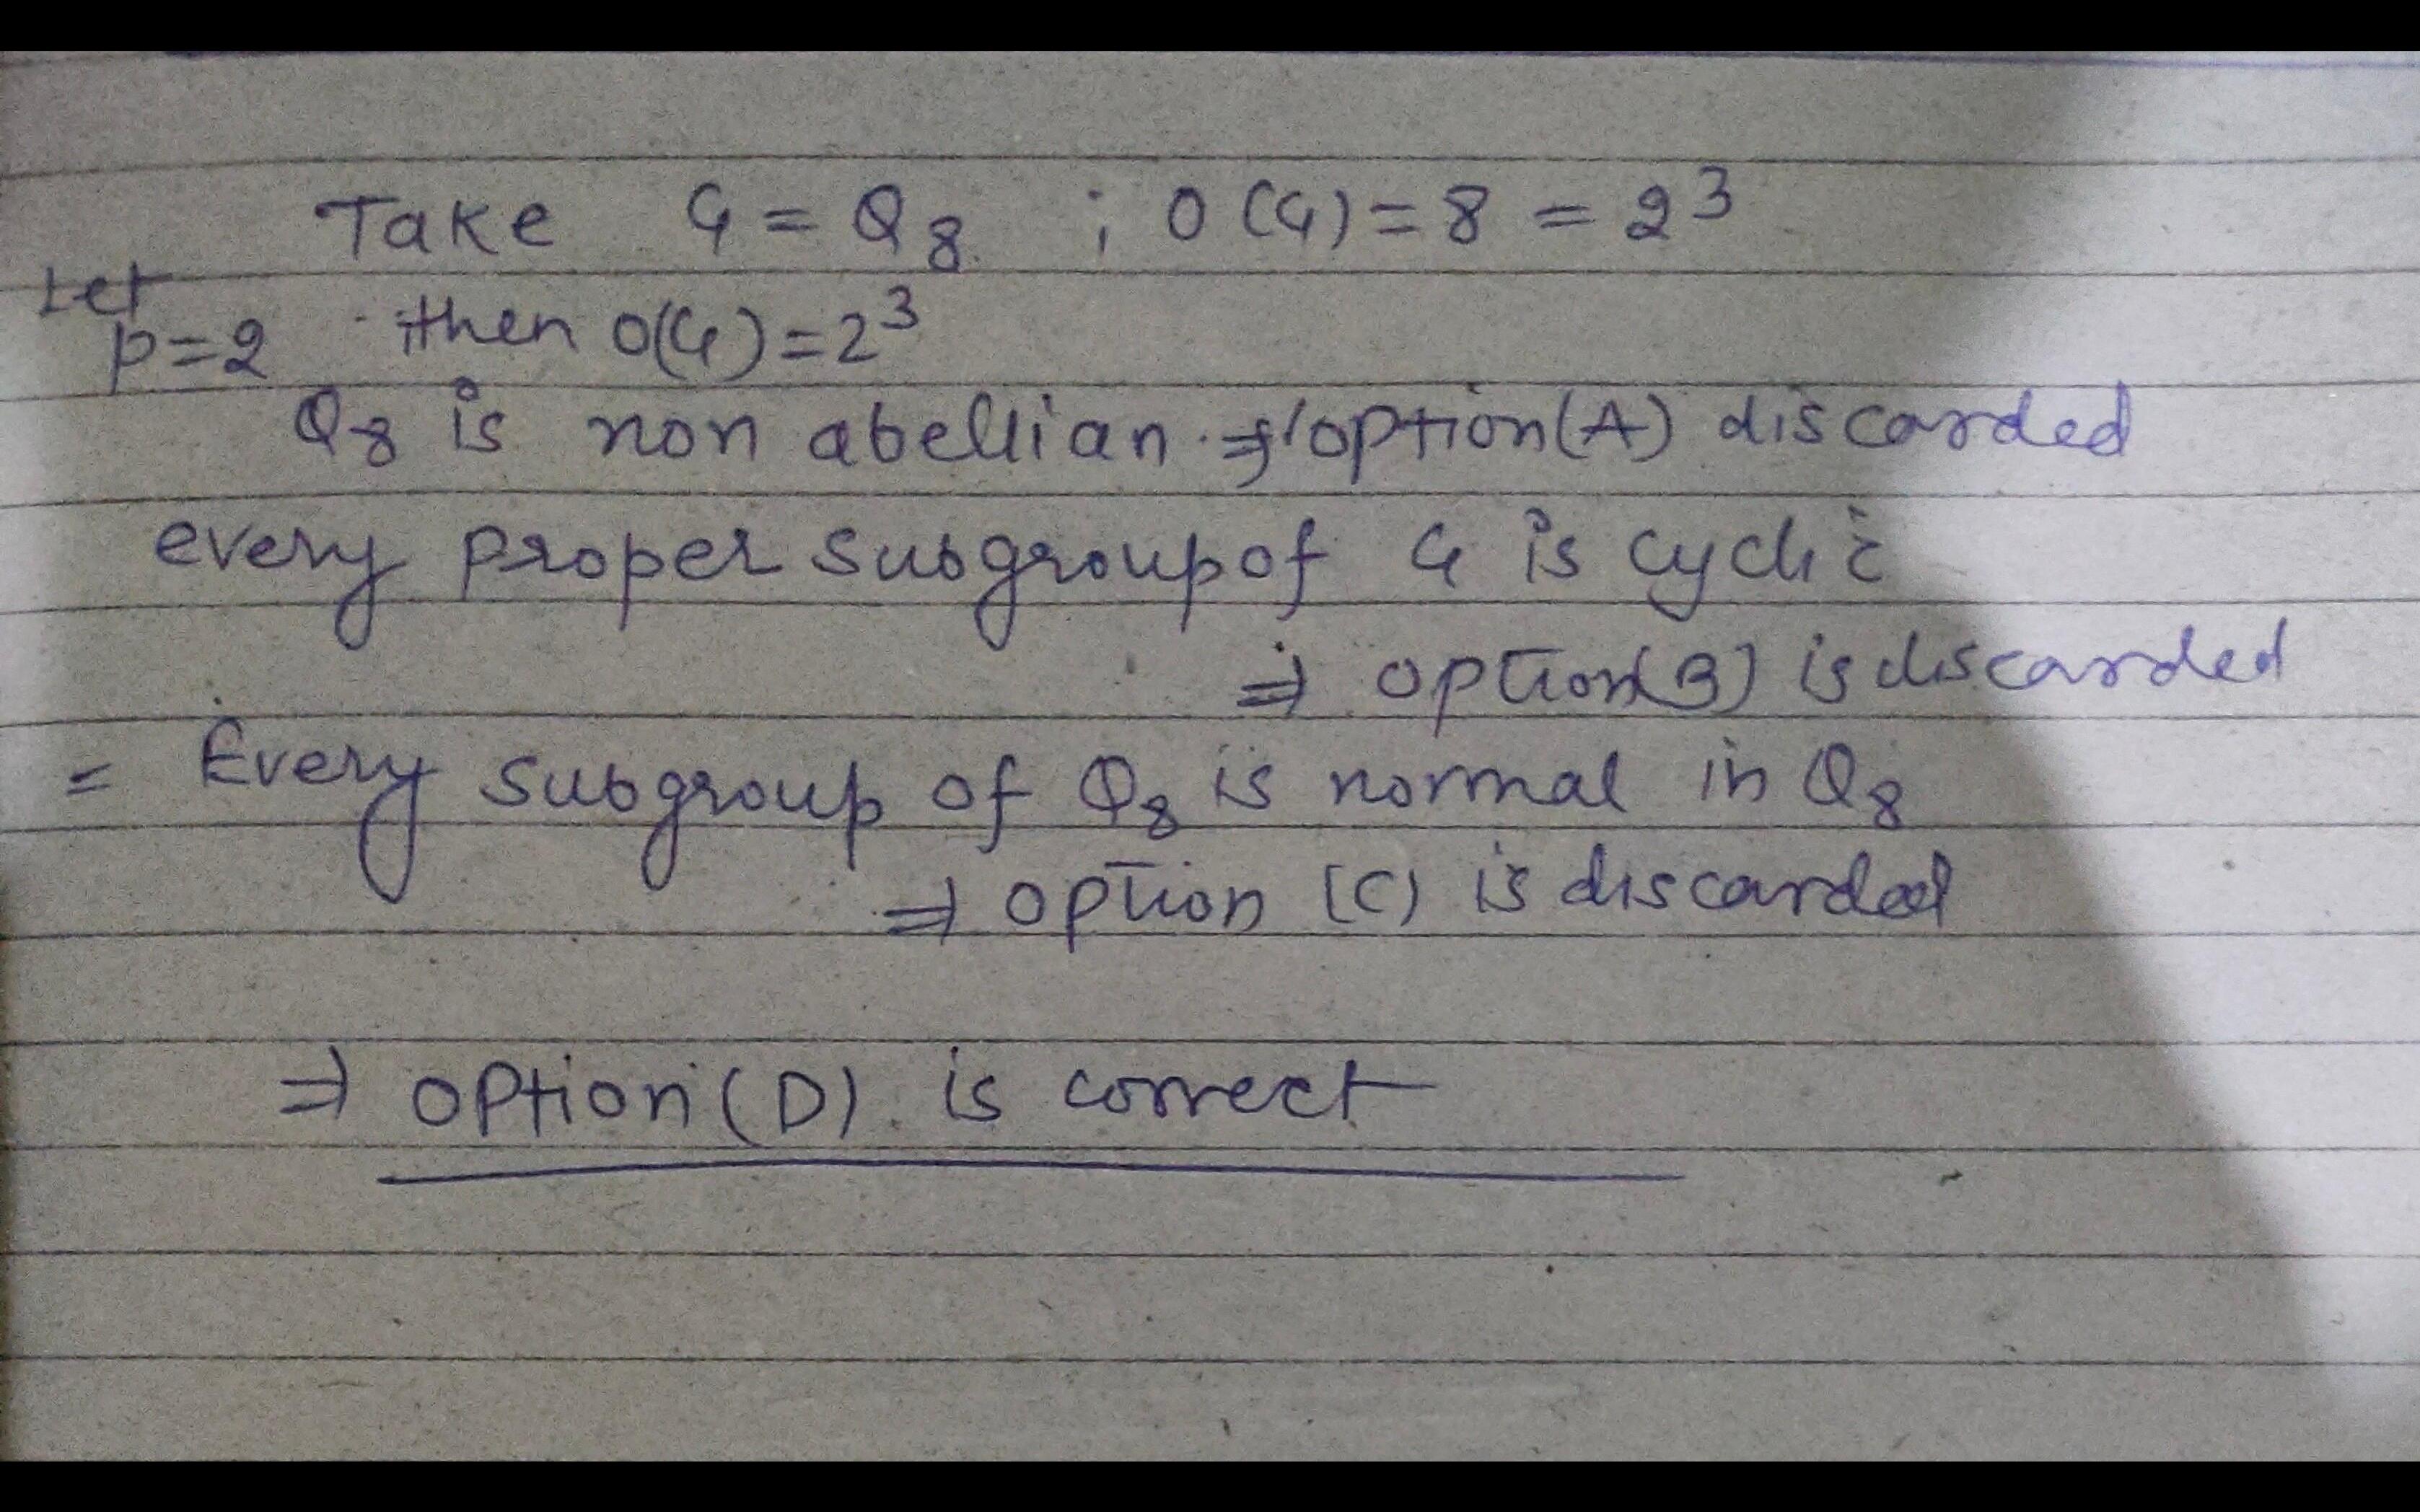 Take G = Q8 ; O(G) = 8 = 2³
Let p=2 then O(G)=2³
Q8 is non abellian ⇒ option(A) discarded
every proper subgroup of G is cyclic
⇒ option(B) is discarded
= Every subgroup of Q8 is normal in Q8
⇒ option (C) is discarded
⇒ option (D) is correct